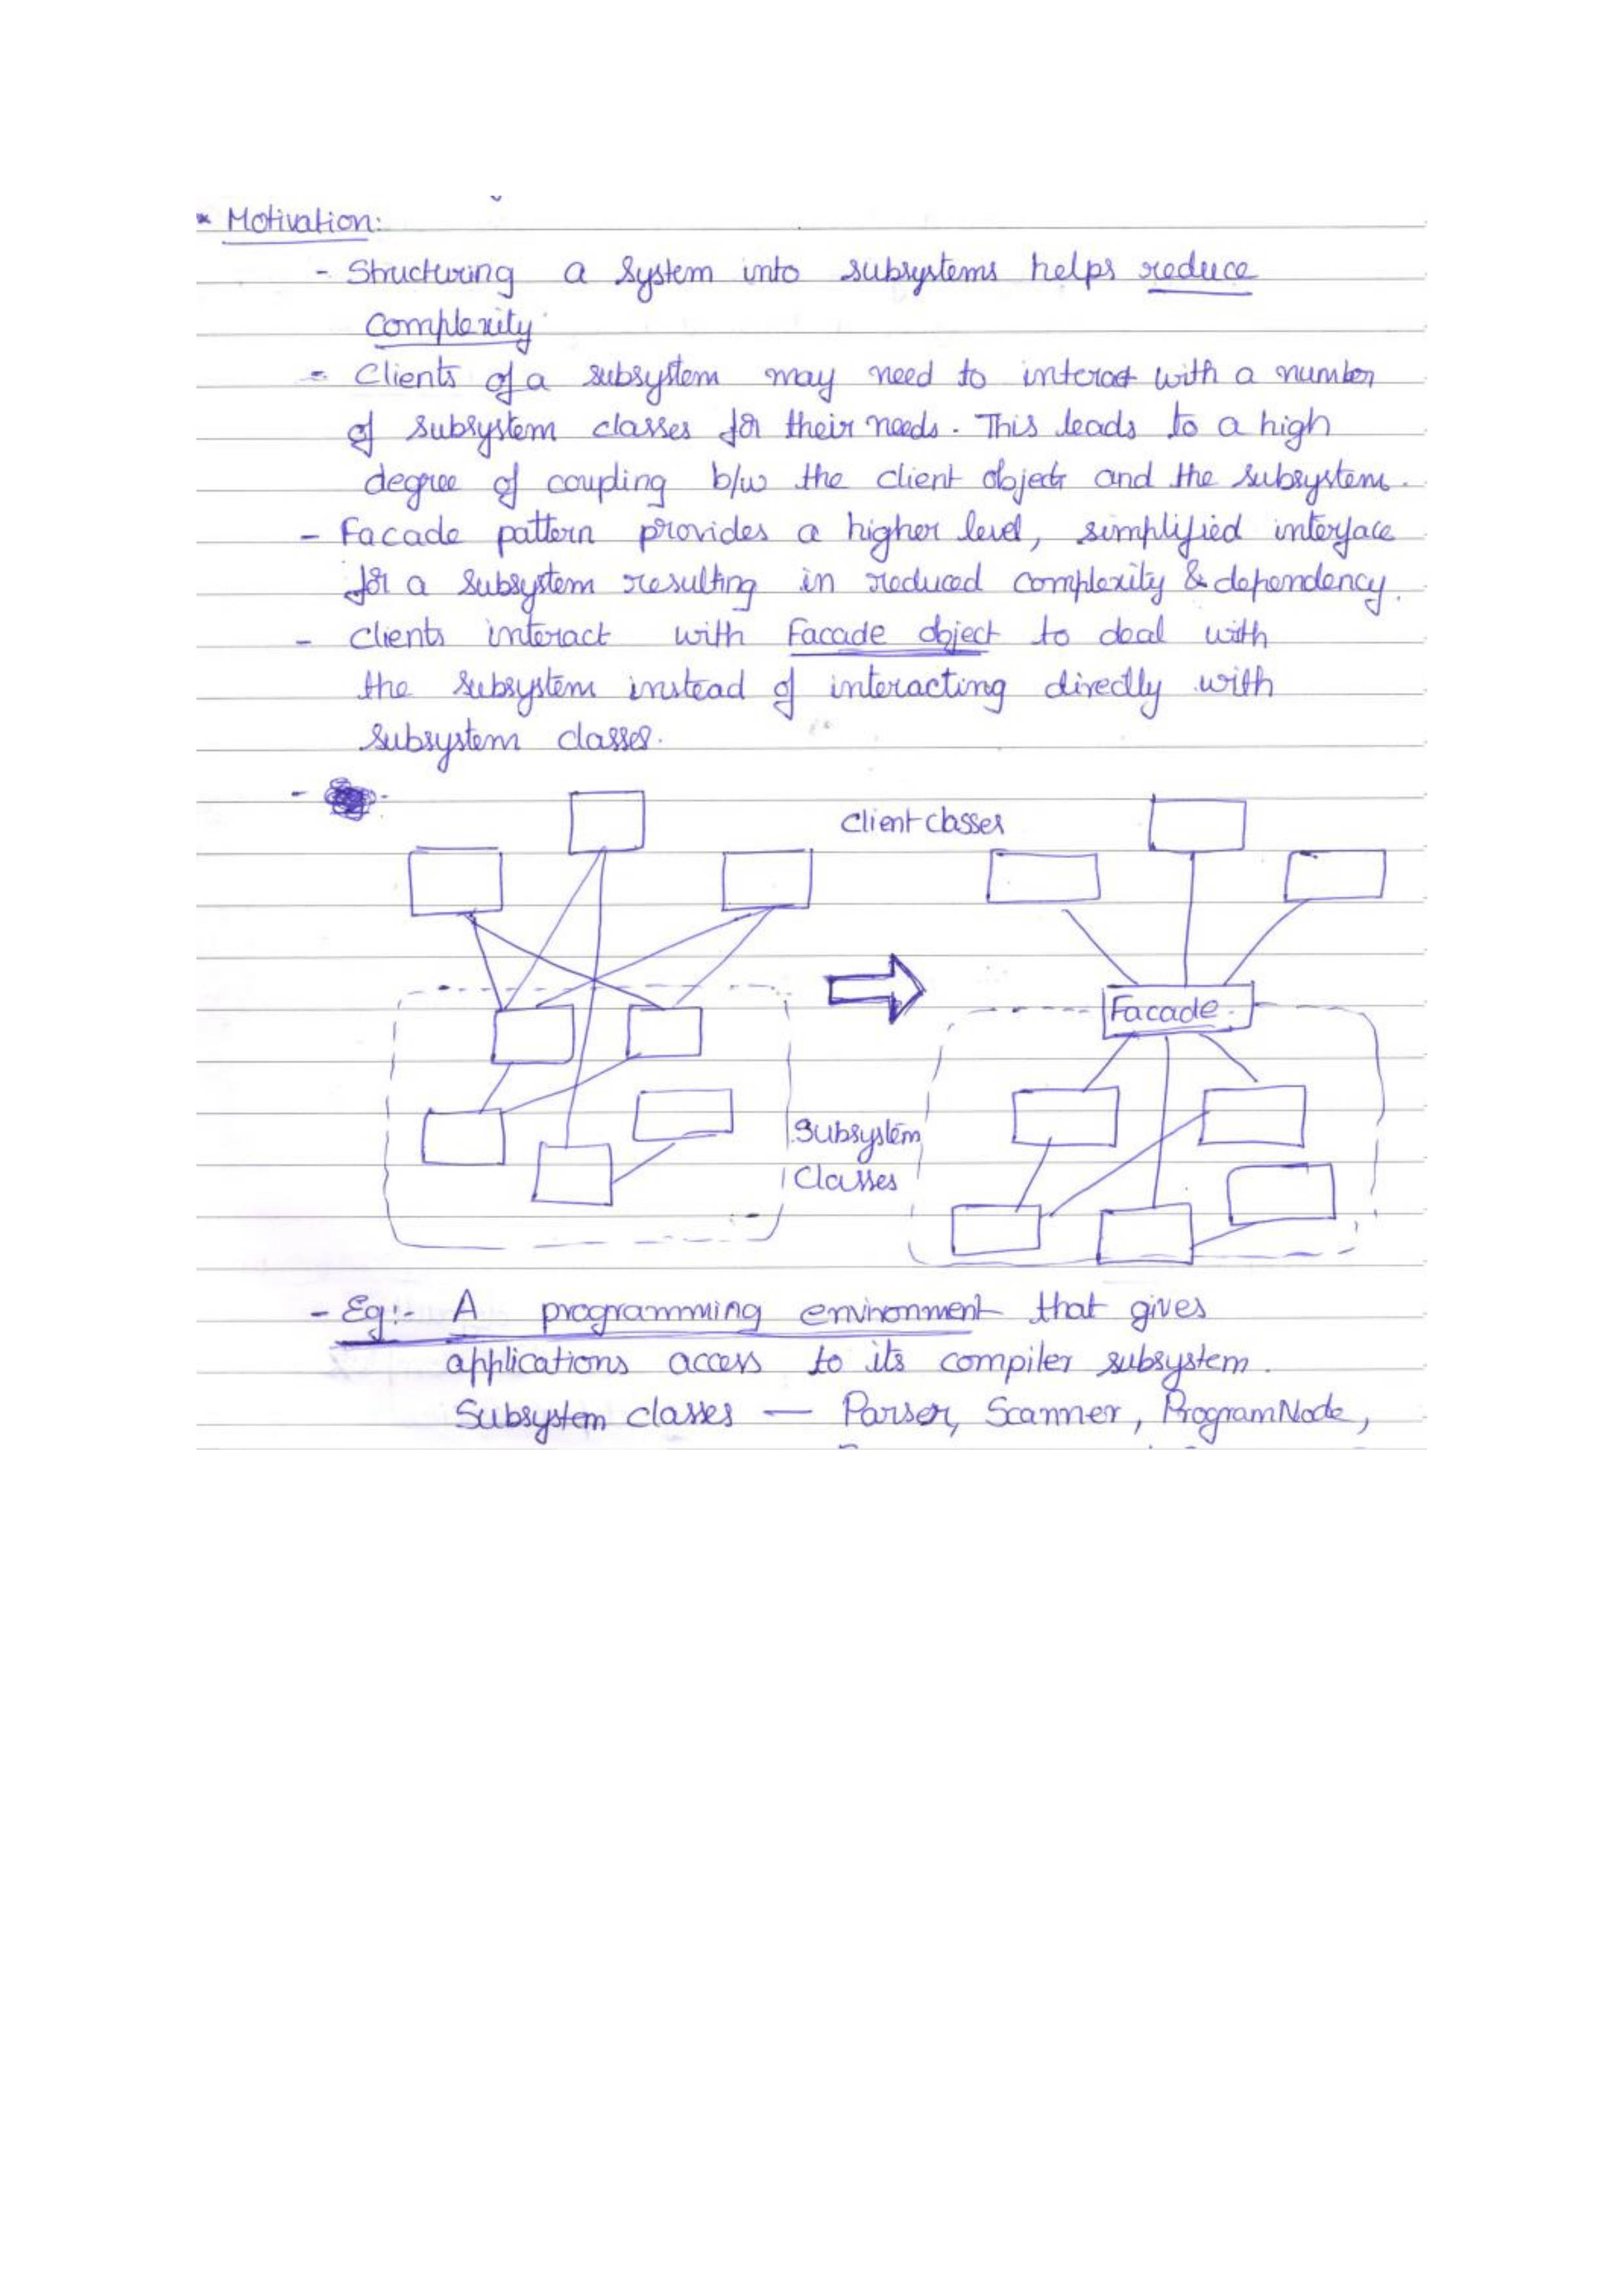 * Motivation:
- Structuring a system into subsystems helps reduce
complexity
- Clients of a subsystem may need to interact with a number
of subsystem classes for their needs. This leads to a high
degree of coupling b/w the client objects and the subsystem.
- Facade pattern provides a higher level, simplified interface
for a subsystem resulting in reduced complexity & dependency.
- Clients interact with Facade object to deal with
the subsystem instead of interacting directly with
subsystem classes.
-
Client classes
Facade
Subsystem
Classes
- Eg:- A programming environment that gives
applications access to its compiler subsystem.
Subsystem classes — Parser, Scanner, ProgramNode,